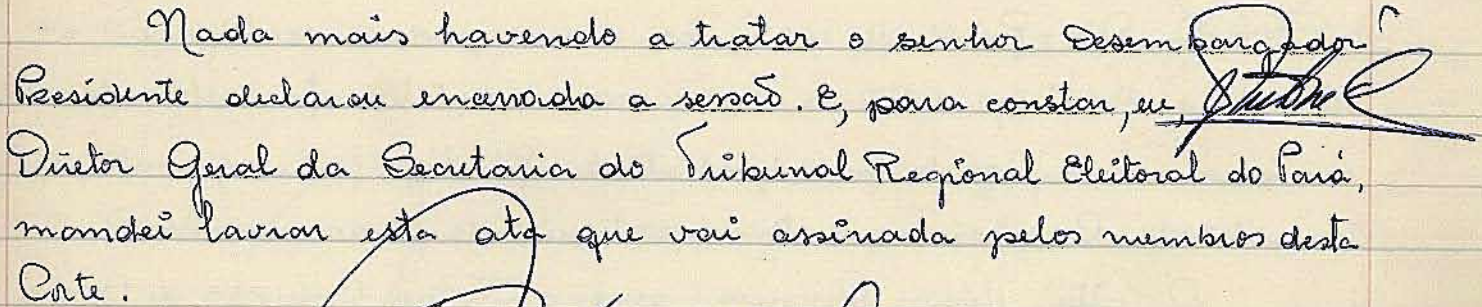 Nada mais havendo a tratar o senhor Desembargador
Presidente declarou encerrada a sessão. E, para constar, eu,
Diretor Geral da Secretaria do Tribunal Regional Eleitoral do Pará,
mandei lavrar esta ata que vai assinada pelos membros desta
Corte.